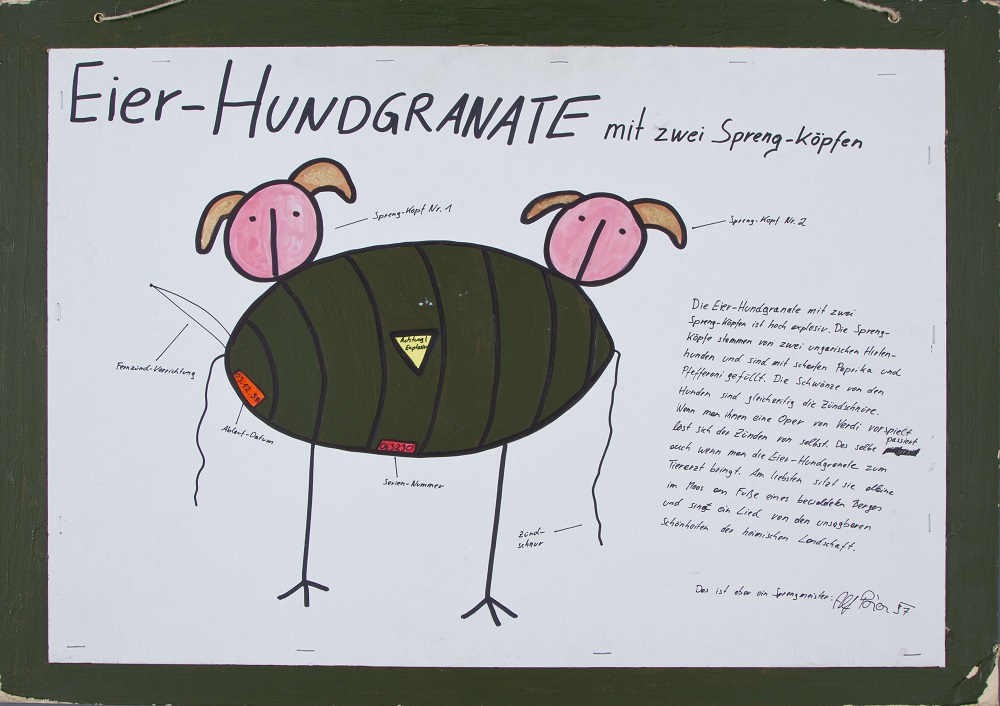 Eier-HUNDGRANATE mit zwei Spreng-Köpfen
Spreng-Kopf Nr. 1
Spreng-Kopf Nr. 2
Achtung!
Explosiv
Fernzünd-Vorrichtung
Ablauf-Datum
063230
Serien-Nummer
Zünd-
schnur
Die Eier-Hundgranate mit zwei
Spreng-Köpfen ist hoch explosiv. Die Spreng-
Köpfe stammen von zwei ungarischen Hirten-
hunden und sind mit scharfen Paprika und
Pfefferoni gefüllt. Die Schwänze von den
Hunden sind gleichzeitig die Zündschnüre.
Wenn man ihnen eine Oper von Verdi vorspielt
löst sich der Zünder von selbst. Das selbe passiert
auch wenn man die Eier-Hundgranate zum
Tierarzt bringt. Am liebsten sitzt sie alleine
im Moos am Fuße eines bewaldeten Berges
und singt ein Lied von den unsagbaren
Schönheiten der heimischen Landschaft.
Das ist aber ein Sprengmeister: